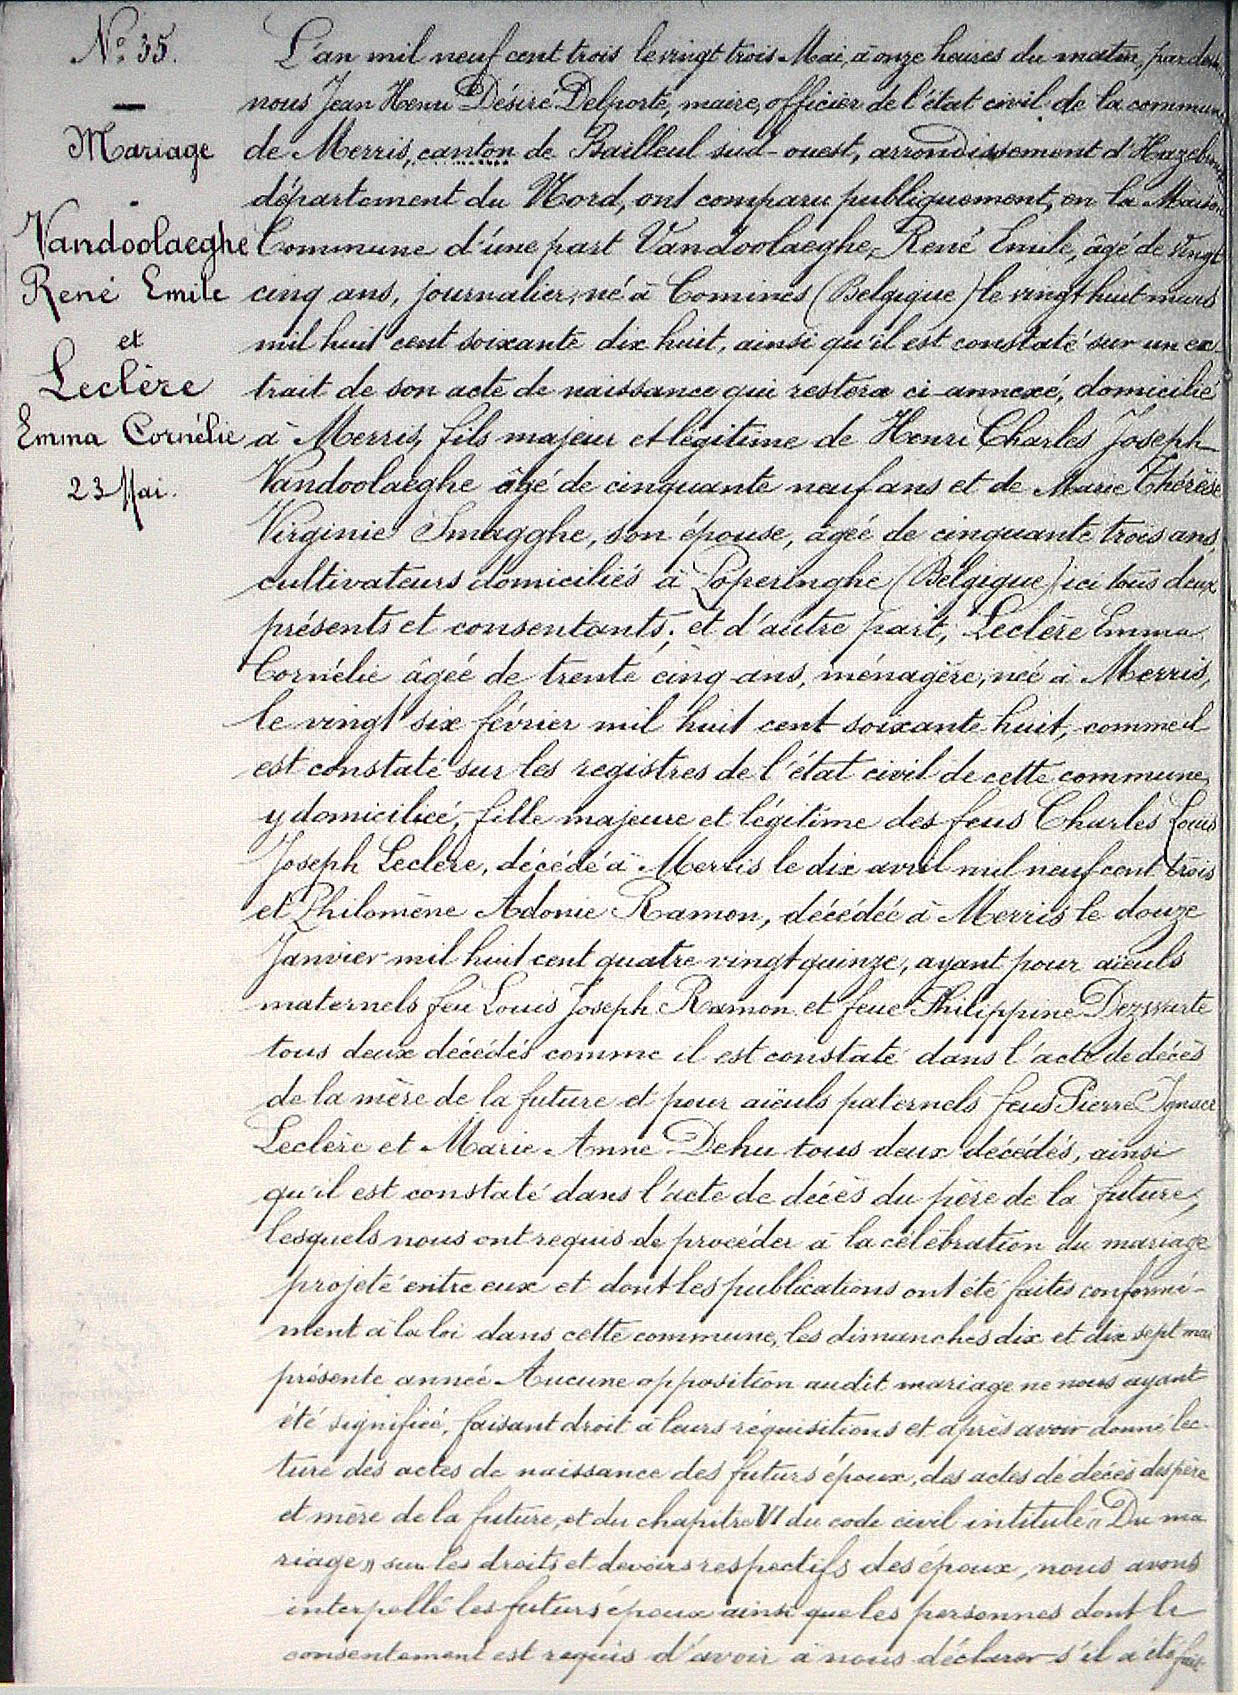 N° 35.
Mariage
Vandoolaeghe
René Emile
et
Leclère
Emma Cornélie
23 Mai.
L'an mil neuf cent trois le vingt trois Mai, à onze heures du matin, par devant
nous Jean Henri Désiré Delporte, maire, officier de l'état civil de la commune
de Merris, canton de Bailleul sud-ouest, arrondissement d'Hazebrouck
département du Nord, ont comparu publiquement, en la Maison
Commune d'une part Vandoolaeghe, René Emile, âgé de vingt
cinq ans, journalier, né à Comines (Belgique) le vingt huit mars
mil huit cent soixante dix huit, ainsi qu'il est constaté sur un ex-
trait de son acte de naissance qui restera ci-annexé, domicilié
à Merris, fils majeur et légitime de Henri Charles Joseph
Vandoolaeghe âgé de cinquante neuf ans et de Marie Thérèse
Virginie Smagghe, son épouse, âgée de cinquante trois ans,
cultivateurs domiciliés à Poperinghe (Belgique) ici tous deux
présents et consentants; et d'autre part, Leclère Emma
Cornélie âgée de trente cinq ans, ménagère, née à Merris,
le vingt six février mil huit cent soixante huit, comme il
est constaté sur les registres de l'état civil de cette commune,
y domiciliée, fille majeure et légitime des feus Charles Louis
Joseph Leclère, décédé à Merris le dix avril mil neuf cent trois
et Philomène Adonie Ramon, décédée à Merris le douze
Janvier mil huit cent quatre vingt quinze, ayant pour aïeuls
maternels feu Louis Joseph Ramon et feue Philippine Dezwarte
tous deux décédés comme il est constaté dans l'acte de décès
de la mère de la future et pour aïeuls paternels feus Pierre Ignace
Leclère et Marie Anne Dehu tous deux décédés, ainsi
qu'il est constaté dans l'acte de décès du père de la future,
lesquels nous ont requis de procéder à la célébration du mariage
projeté entre eux et dont les publications ont été faites conformé-
ment à la loi dans cette commune, les dimanches dix et dix sept mai
présente année Aucune opposition audit mariage ne nous ayant
été signifiée, faisant droit à leurs réquisitions et après avoir donné lec-
ture des actes de naissance des futurs époux, des actes de décès des père
et mère de la future, et du chapitre VI du code civil intitulé "Du ma
riage" sur les droits et devoirs respectifs des époux, nous avons
interpellé les futurs époux ainsi que les personnes dont le
consentement est requis d'avoir à nous déclarer s'il a été fait